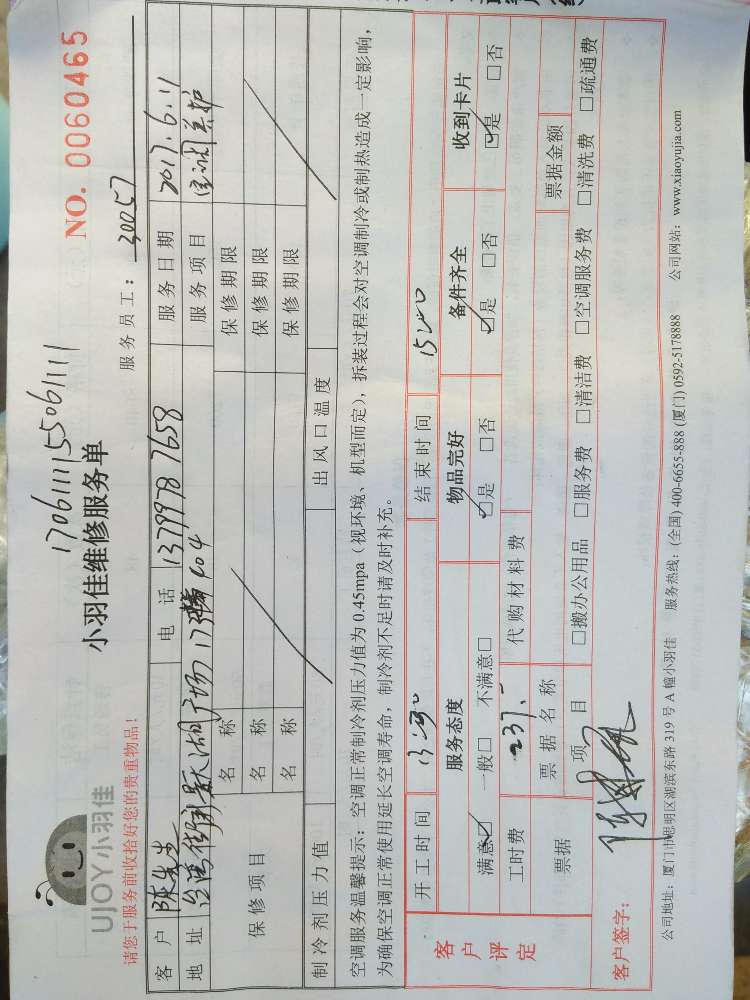 NO. 0060465
1706111155061111
小羽佳维修服务单
UJOY小羽佳
请您于服务前收拾好您的贵重物品！
服务员工： 30057
客户 陈先生 电话 13799787658 服务日期 2017.6.11
地址 湖广场17 404 服务项目 空调养护
保修项目 名称 保修期限
名称 保修期限
名称 保修期限
制冷剂压力值 出风口温度
空调服务温馨提示：空调正常制冷剂压力值为 0.45mpa（视环境、机型而定），拆装过程会对空调制冷或制热造成一定影响，
为确保空调正常使用延长空调寿命，制冷剂不足时请及时补充。
客户评定
开工时间 结束时间
服务态度 物品完好 备件齐全 收到卡片
满意☑ 一般□ 不满意□ ☑是 □否 ☑是 □否 ☑是 □否
工时费 237.- 代购材料费
票据 票据名称 票据金额
项目 □搬办公用品 □服务费 □清洁费 □空调服务费 □清洗费 □疏通费
客户签字：
公司地址：厦门市思明区湖滨东路 319 号 A 幢小羽佳 服务热线：(全国) 400-6655-888 (厦门) 0592-5178888 公司网站：www.xiaoyujia.com